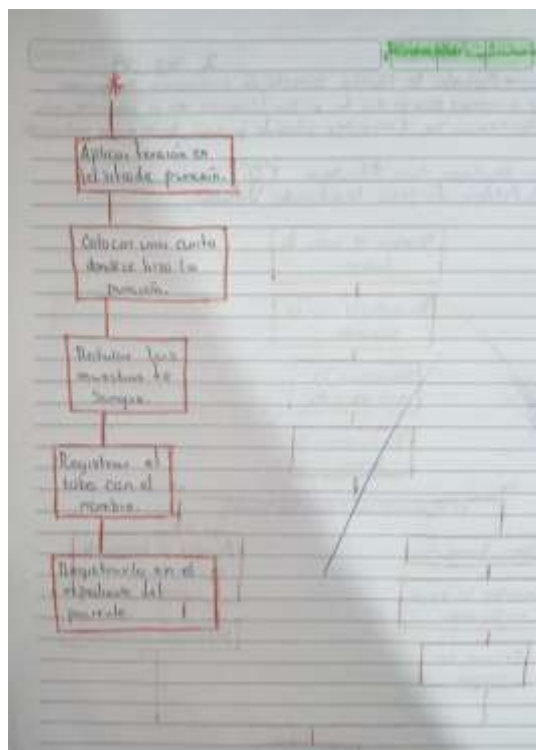 *
Aplicar tensión en
el sitio de punción.
Colocar una curita
donde se hizo la
punción.
Rotular las
muestras de
Sangre.
Registrar el
tubo con el
nombre.
Registrarlo en el
expediente del
paciente.